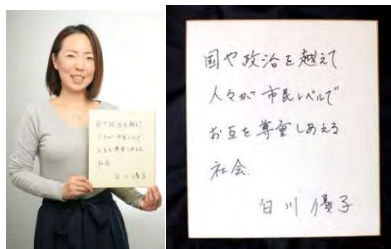 国や政治を越えて
人々が市民レベルで
お互を尊重しあえる
社会
白川優子